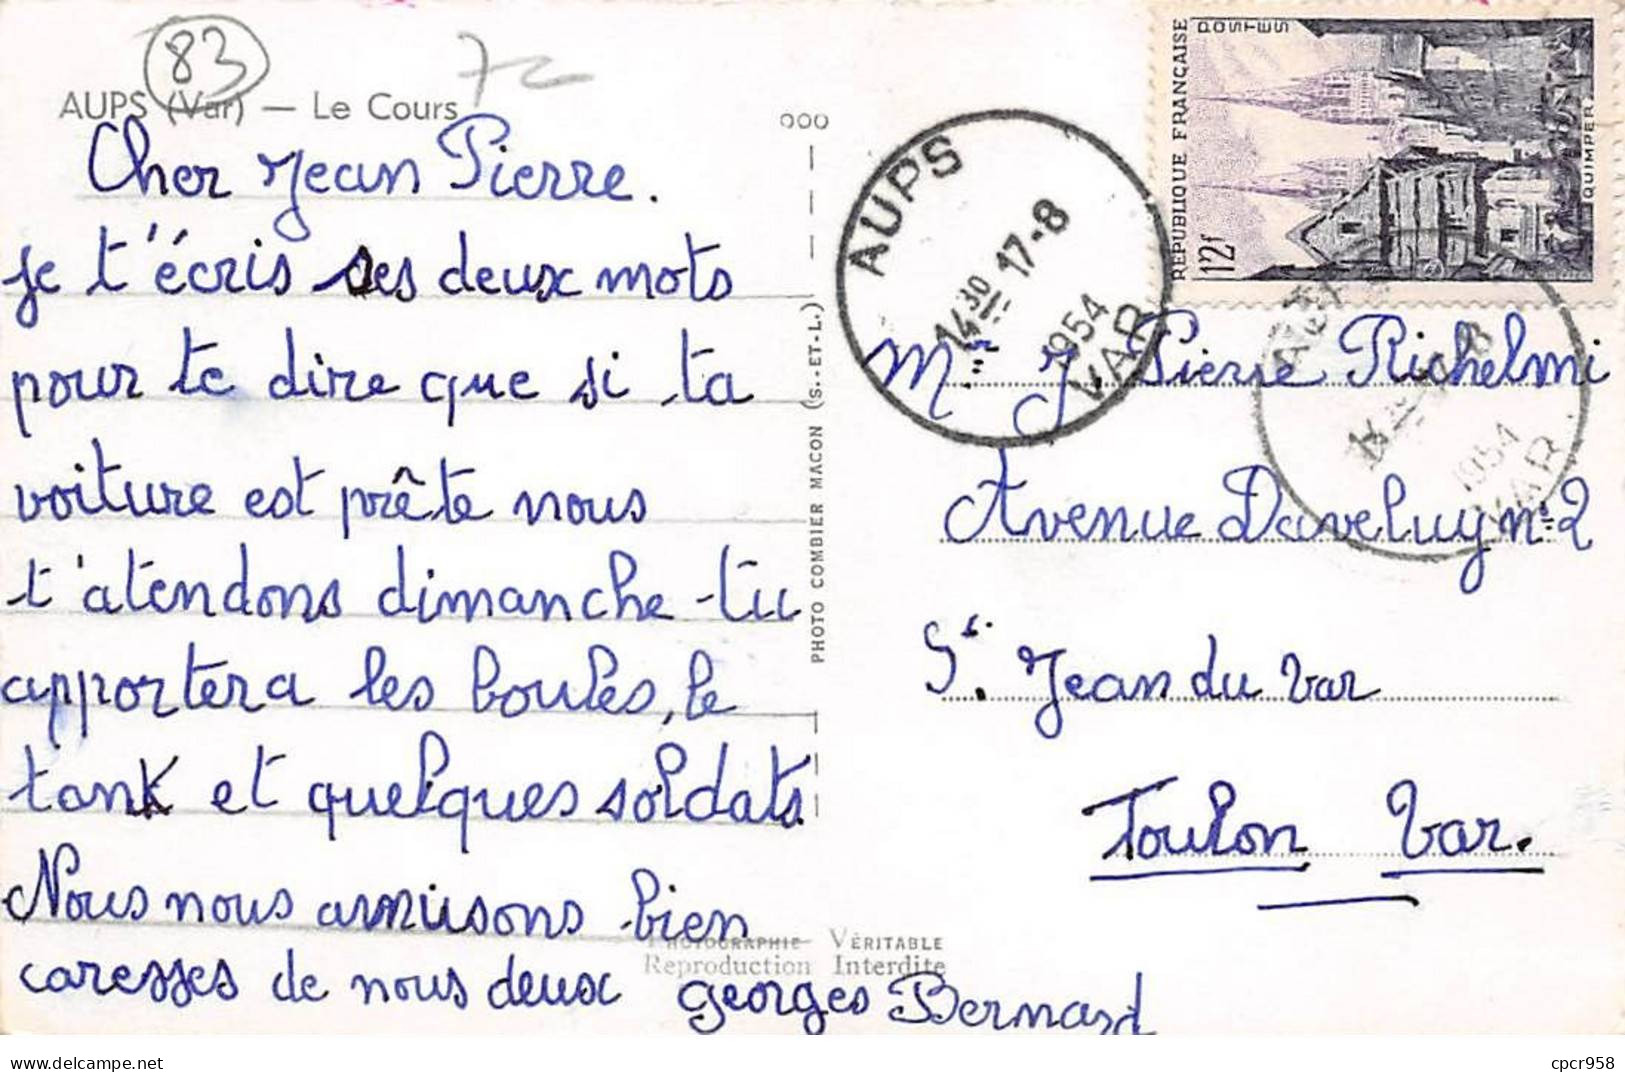 83
AUPS (Var) — Le Cours
Cher Jean Pierre.
je t'écris ses deux mots
pour te dire que si ta
voiture est prête nous
t'atendons dimanche tu
apportera les boules, le
tank et quelques soldats.
Nous nous amusons bien
caresses de nous deux Georges Bernard
PHOTO COMBIER MACON (S.-ET-L.)
PHOTOGRAPHIE VÉRITABLE
Reproduction Interdite
AUPS
14 30 17-8
1954
VAR
REPUBLIQUE FRANÇAISE
POSTES
12f
QUIMPER
1954
VAR
Mr J Pierre Richelmi
Avenue Daveluy n°2
St. Jean du Var
Toulon Var.
delcampe.net
cpcr958